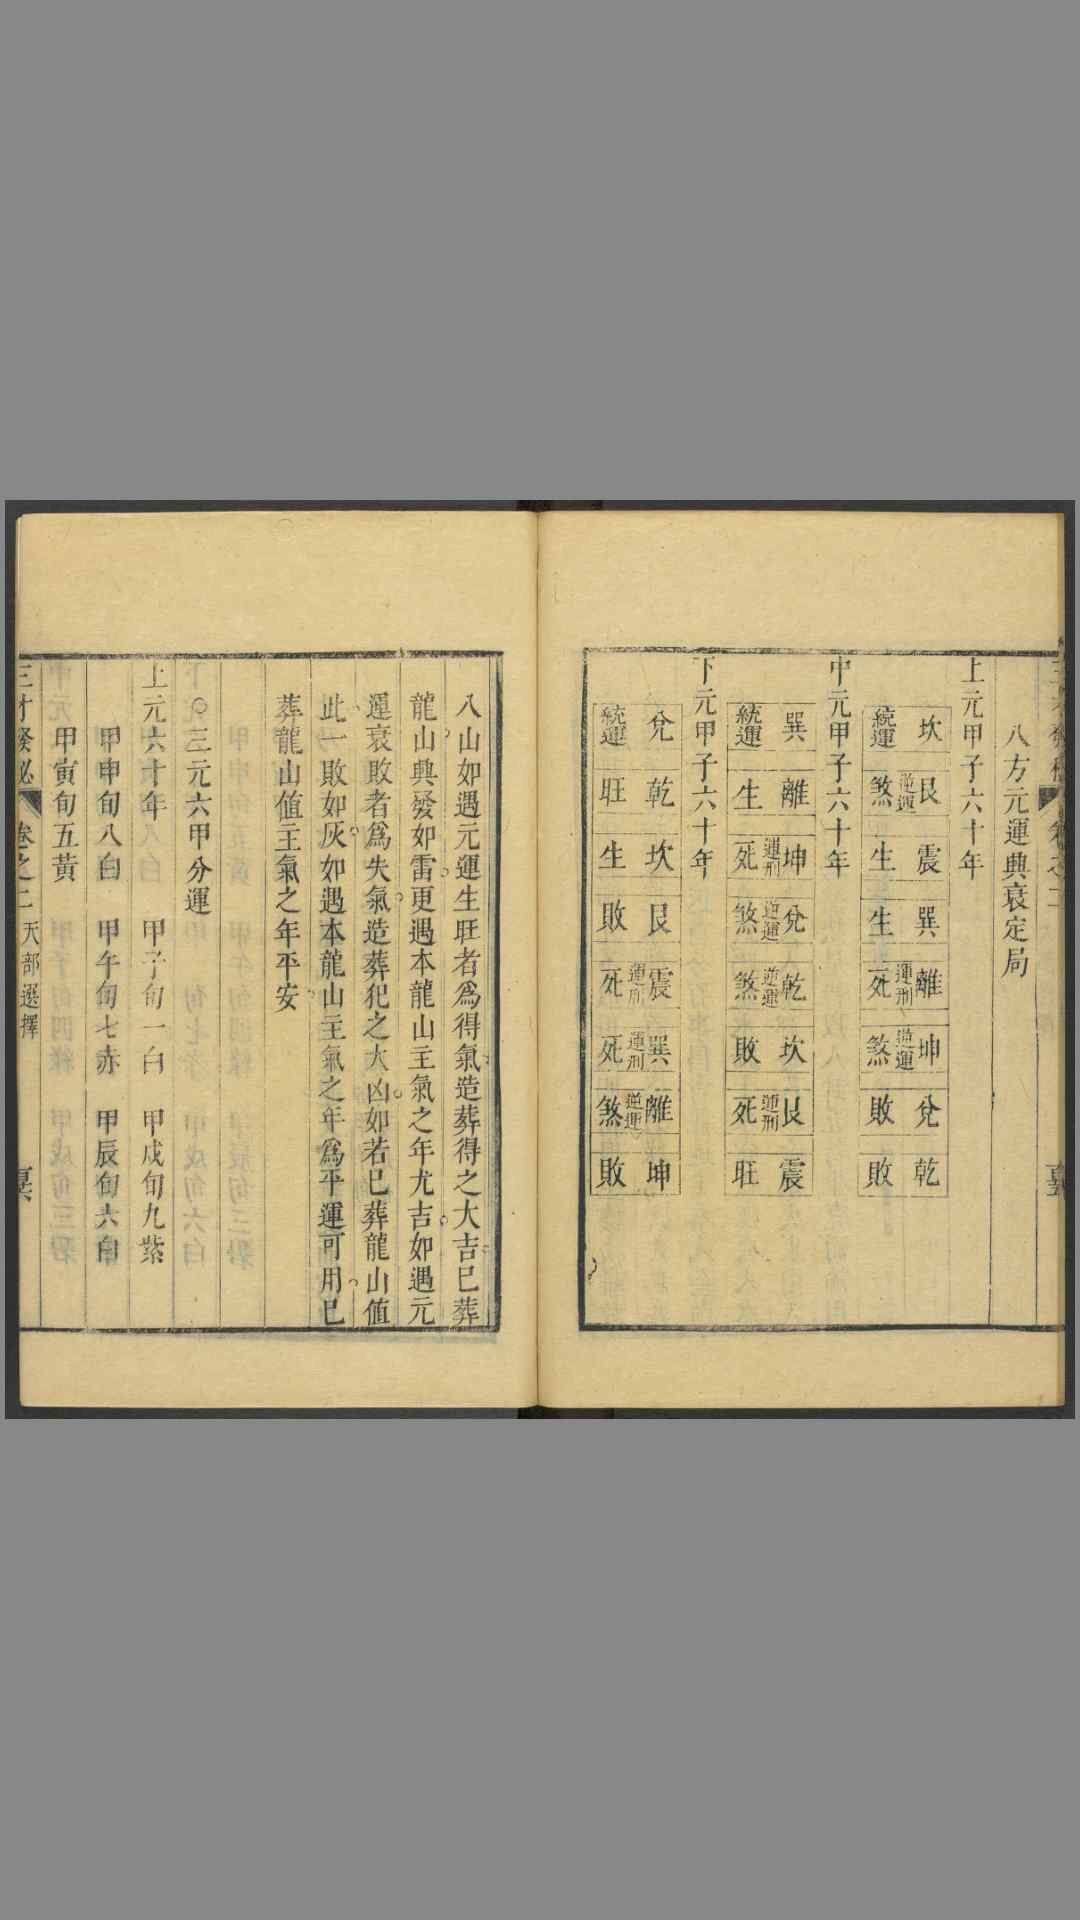 八方元運興衰定局
上元甲子六十年
坎 統運
艮 逆運 煞
震 生
巽 生
離 運刑 死
坤 逆運 煞
兌 敗
乾 敗
中元甲子六十年
巽 統運
離 生
坤 運刑 死
兌 逆運 煞
乾 逆運 煞
坎 敗
艮 運刑 死
震 旺
下元甲子六十年
兌 統運
乾 旺
坎 生
艮 敗
震 運刑 死
巽 運刑 死
離 逆運 煞
坤 敗
八山如遇元運生旺者為得氣造葬得之大吉巳葬
龍山興發如雷更遇本龍山主氣之年尤吉如遇元
運衰敗者為失氣造葬犯之大凶如若巳葬龍山值
此一敗如灰如遇本龍山主氣之年為平運可用巳
葬龍山值主氣之年平安
○三元六甲分運
上元六十年 甲子旬一白 甲戍旬九紫
甲申旬八白 甲午旬七赤 甲辰旬六白
甲寅旬五黃
三才發秘 卷之二 天部選擇